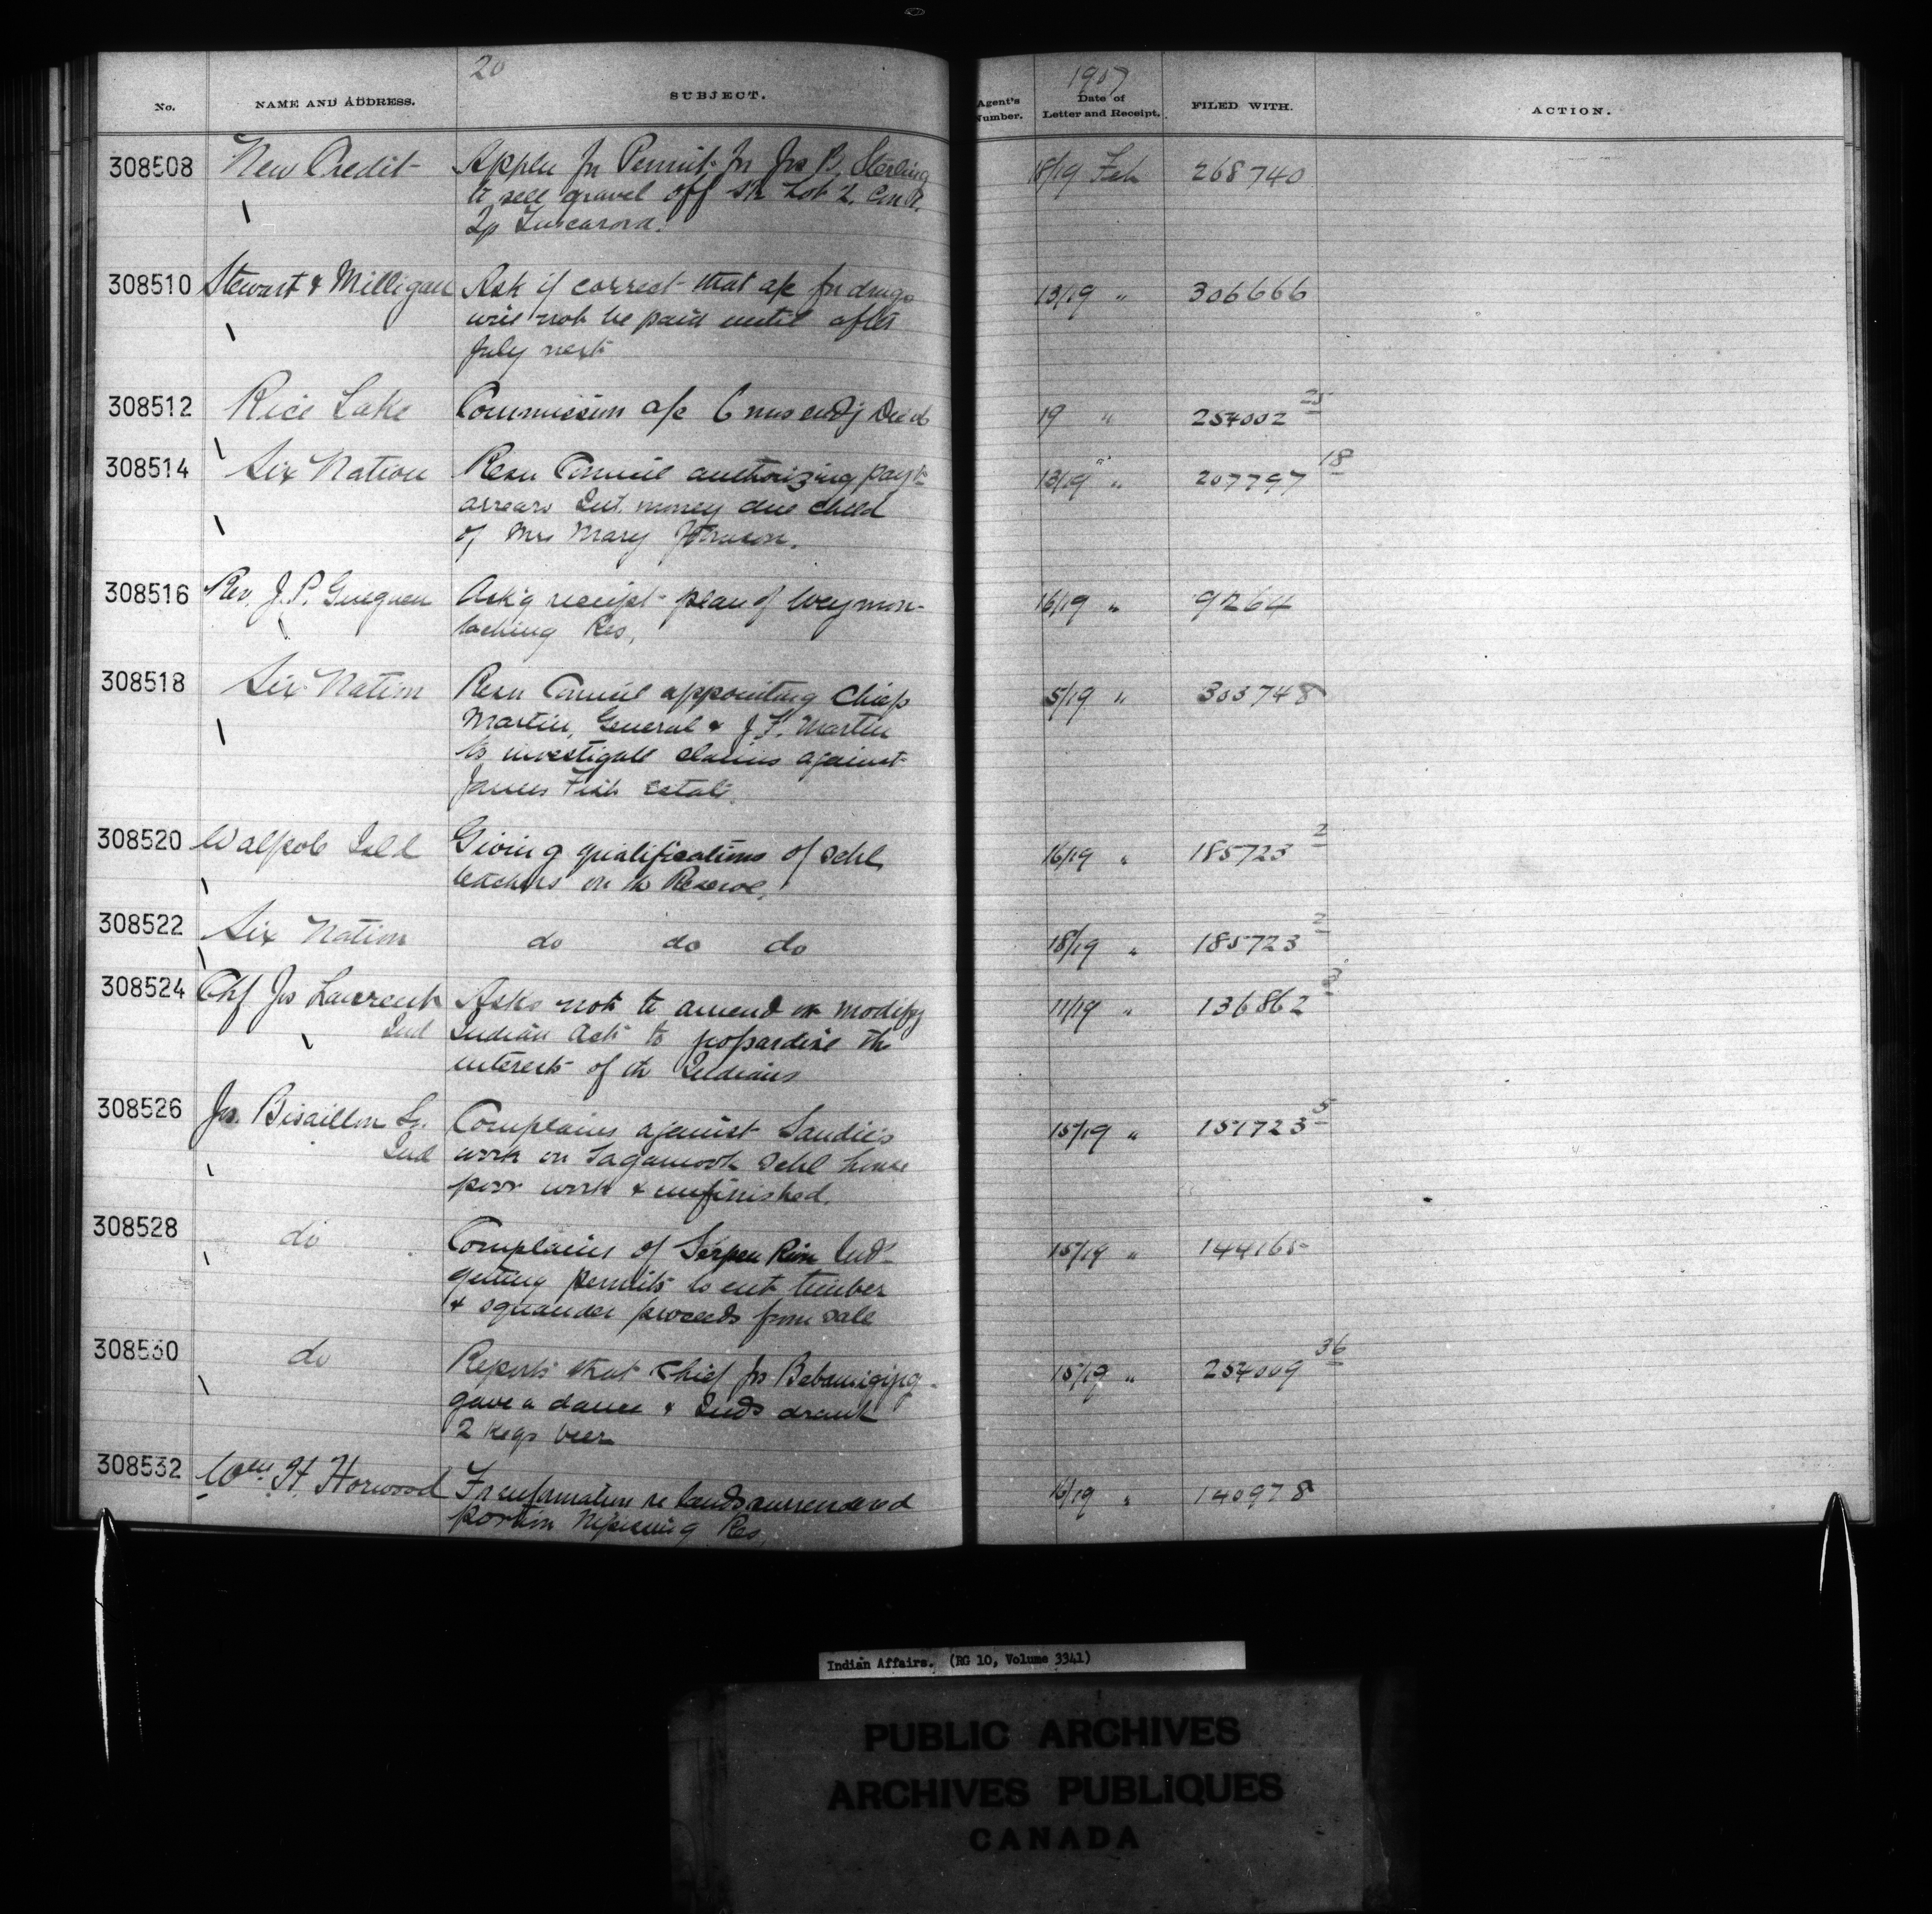 20
No.
NAME AND ADDRESS.
SUBJECT.
Agent's Number.
1907
Date of Letter and Receipt.
FILED WITH.
ACTION.
308508 New Credit Appln for Permit for Jos B. Sterling 18/19 Feb 268740
to sell gravel off Lot 2. Con
Tp Tuscarora.
308510 Stewart & Milligan Ask if correct that a/c for drugs 13/19 " 306666
will not be paid until after
July next
308512 Rice Lake Commission a/c 6 mos endg Decd 19 " 254002 25
308514 Six Nation Resn Council authorizing payt 13/19 " 207797 18
arrears Int. money due child
of Mrs Mary Johnson.
308516 Rev. J. P. Gueguen Ack'g receipt plan of Weymon- 16/19 " 9264
taching Res.
308518 Six Nation Resn Council appointing Chiefs 5/19 " 303748
Martin, General & J. F. Martin
to investigate claims against
James Fish estate.
308520 Walpole Isld Giving qualifications of schl 16/19 " 185723 2
teachers on the Reserve.
308522 Six Nation do do do 18/19 " 185723 2
308524 Chf Jos Laurent Asks not to amend or modify 11/19 " 136862 3
Ind Indian Act to jeopardise the
interests of the Indians
308526 Jos. Bisaillon Sr. Complains against Landie's 15/19 " 151723 5
Ind work on Sagamook schl house
poor work & unfinished.
308528 do Complains of Serpen River Inds 15/19 " 144165
getting permits to cut timber
& squander proceeds from sale
308530 do Reports that Chief Jos Babamiging 15/19 " 254009 36
gave a dance & Inds drank
2 kegs beer
308532 Wm H. Horwood For information re lands surrendered 16/19 " 140978
portion Nipissing Res.
Indian Affairs. (RG 10, Volume 3341)
PUBLIC ARCHIVES
ARCHIVES PUBLIQUES
CANADA